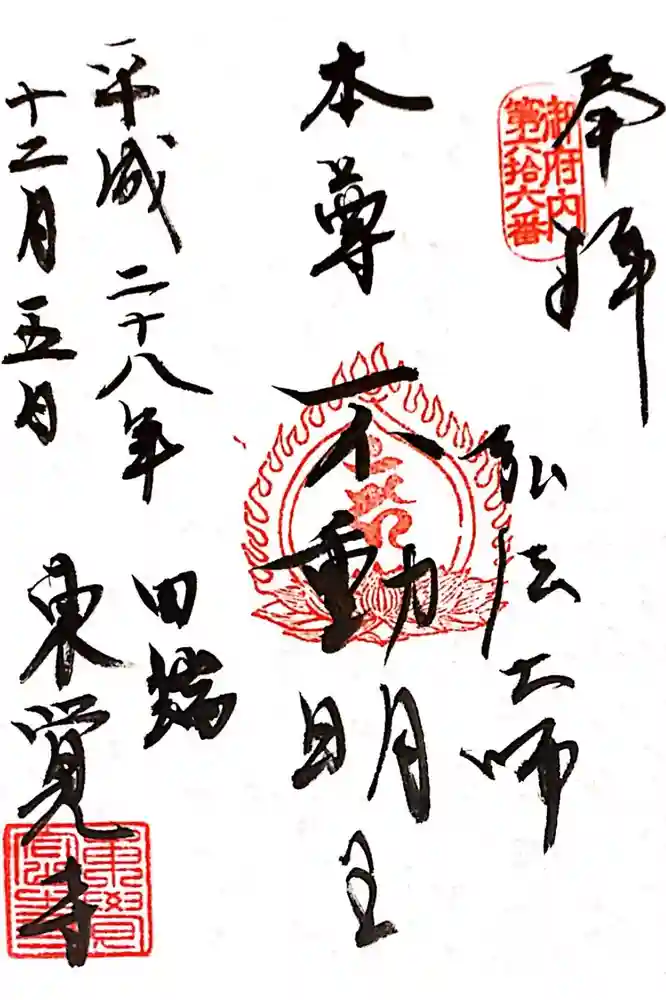 奉拝
御府内
第六拾六番
弘法大師
本尊 不動明王
平成二十八年
十二月五日
田端
東覚寺